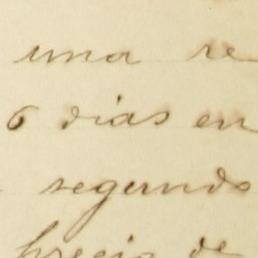 una re
6 dias en
segundo
precio de